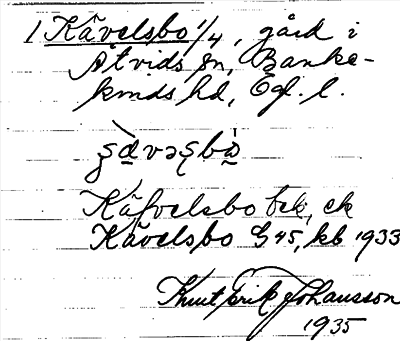 1 Kävelsbo 1/4, gård i
Åtvids sn, Banke-
kinds hd, Ögl. l.
Käfvelsbo bek, ek
Kävelsbo G 45, kb 1933
Knut Erik Johansson
1935